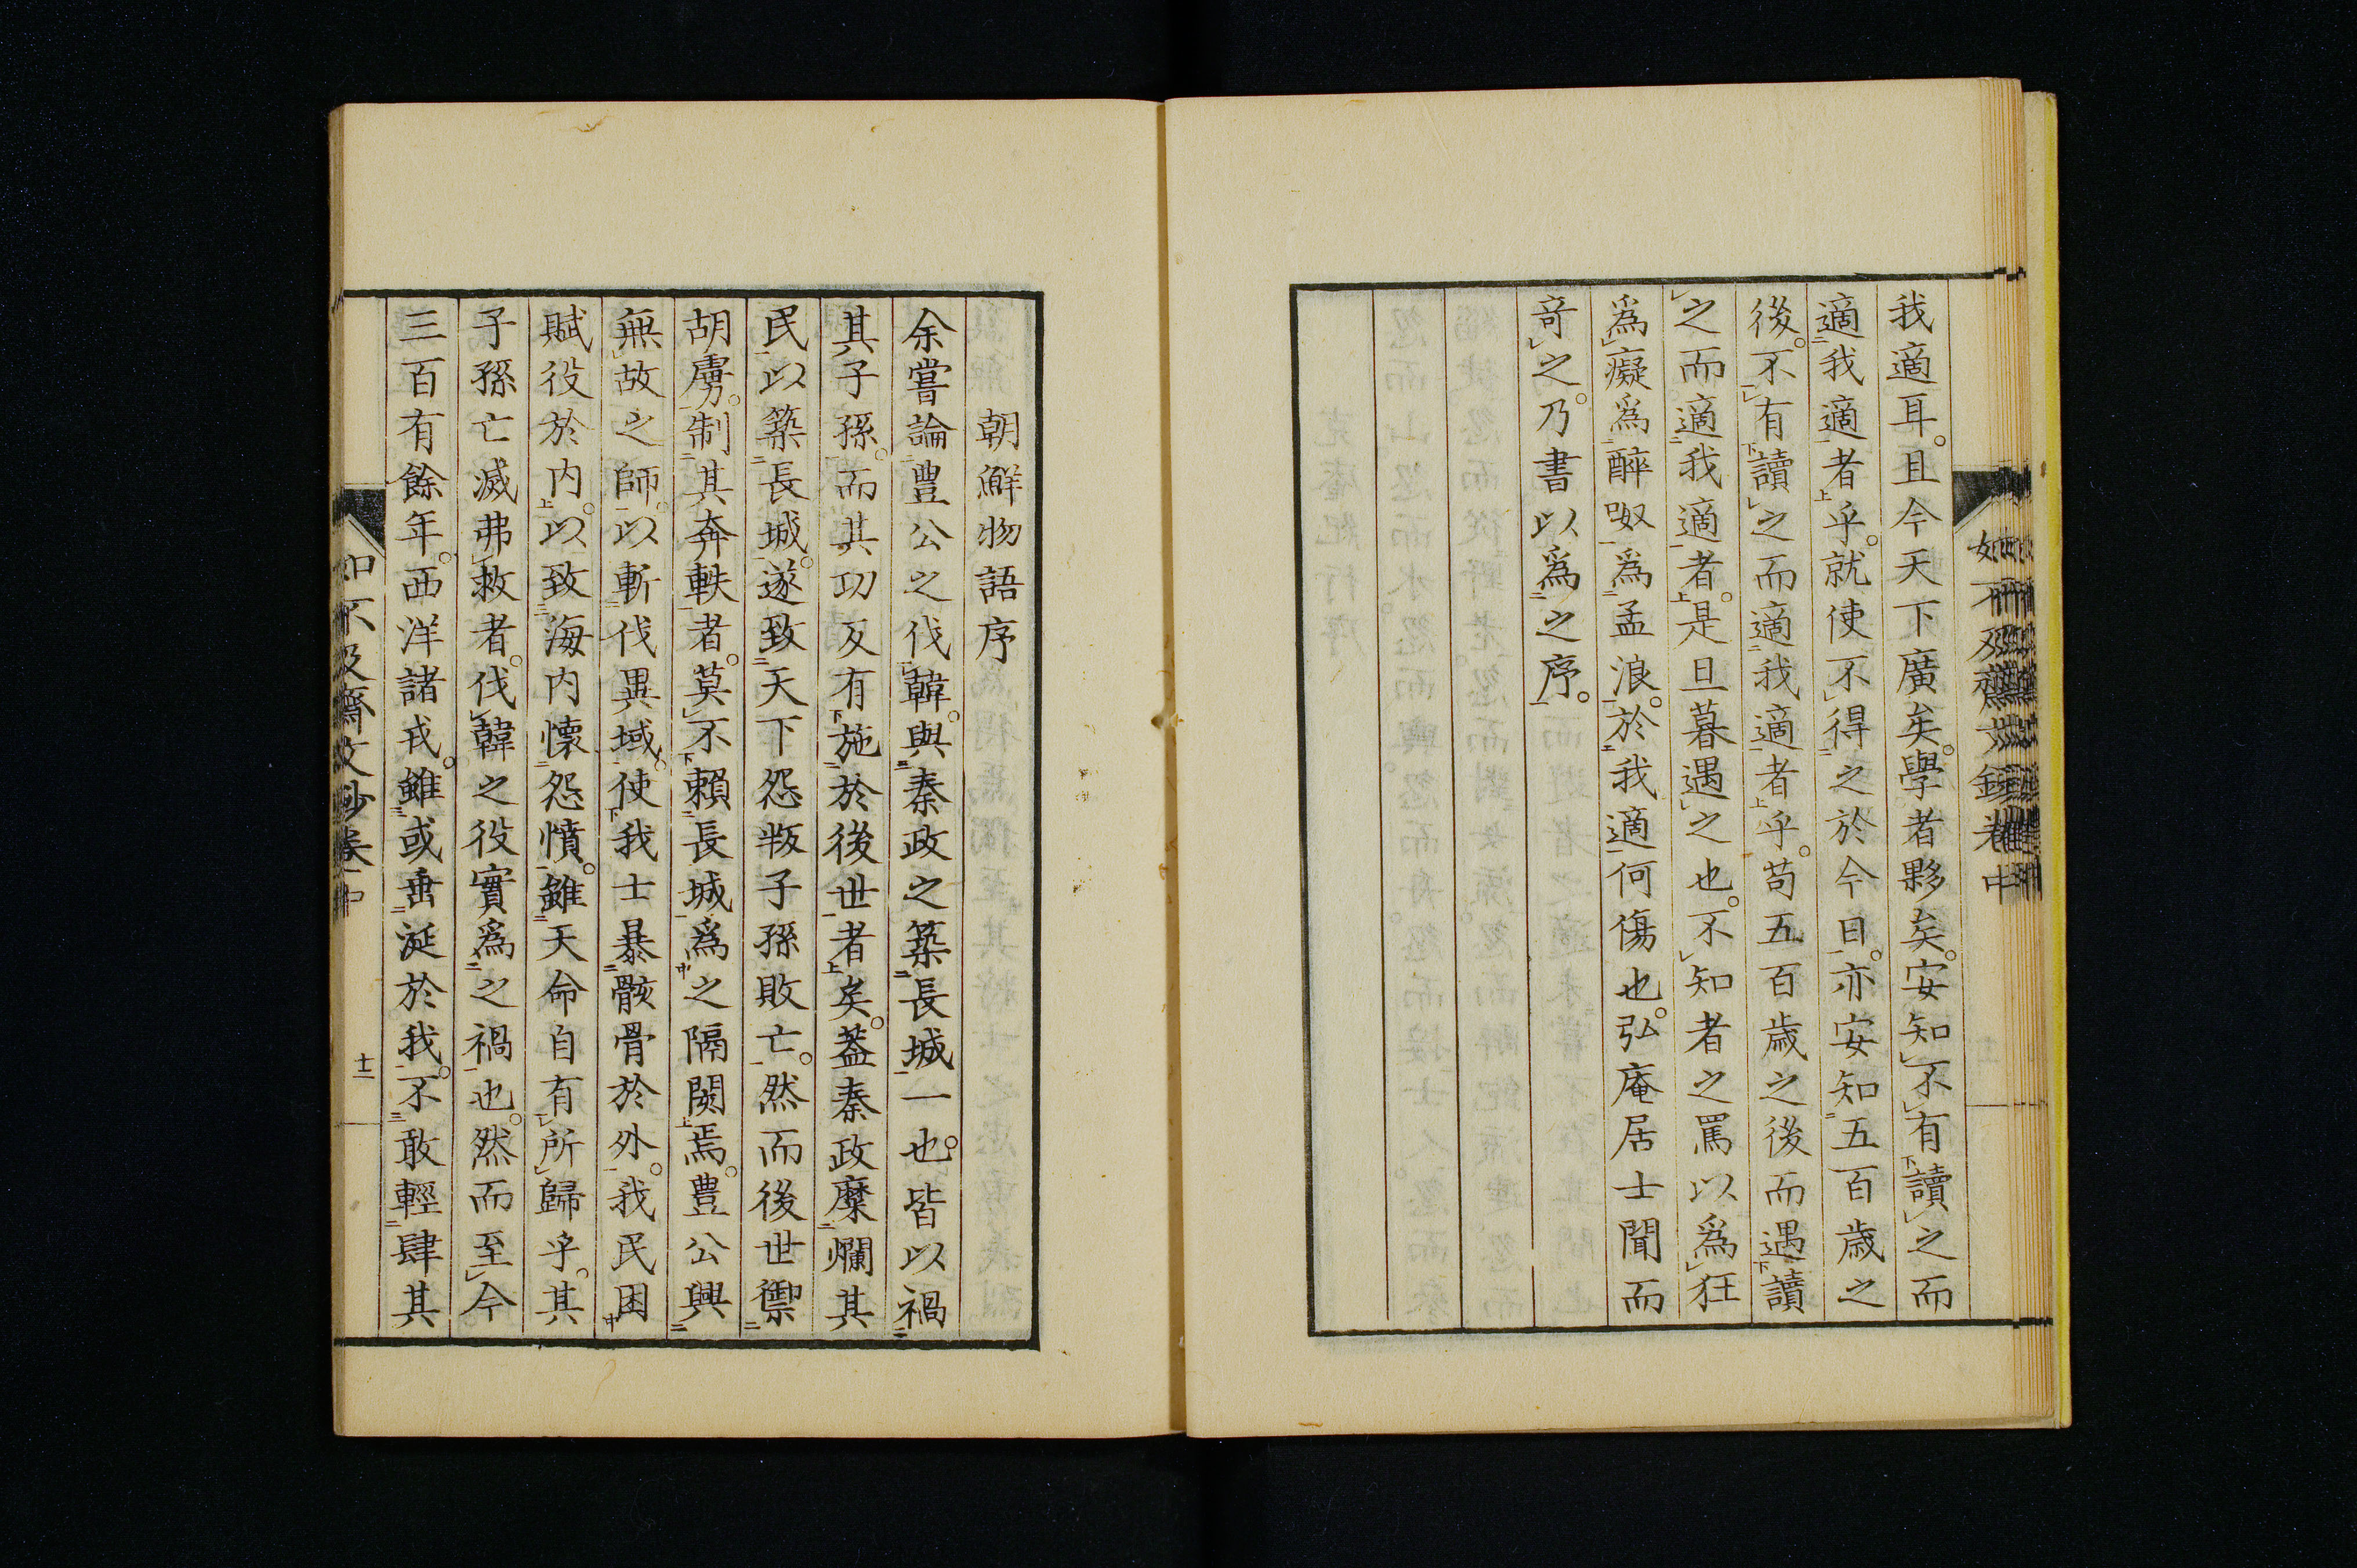 我適耳。且今天下廣矣。學者夥矣。安知不有讀之而
適我適者乎。就使不得之於今日。亦安知五百歳之
後。不有讀之而適我適者乎。苟五百歳之後而遇讀
之而適我適者。是旦暮遇之也。不知者之罵以爲狂
爲癡爲醉呶爲孟浪。於我適何傷也。弘庵居士聞而
竒之。乃書以爲之序。
朝鮮物語序
余嘗論豊公之伐韓。與秦政之築長城一也。皆以禍
其子孫。而其功反有施於後世者矣。蓋秦政糜爛其
民以築長城。遂致天下怨叛子孫敗亡。然而後世禦
胡虜。制其奔軼者。莫不頼長城爲之隔閡焉。豊公興
無故之師。以斬伐異域。使我士暴骸骨於外。我民困
賦役於内。以致海内懷怨憤。雖天命自有所歸乎。其
子孫亡滅弗救者。伐韓之役實爲之禍也。然而至今
三百有餘年。西洋諸戎。雖或垂涎於我。不敢輕肆其
如不及齋文鈔卷中
十一